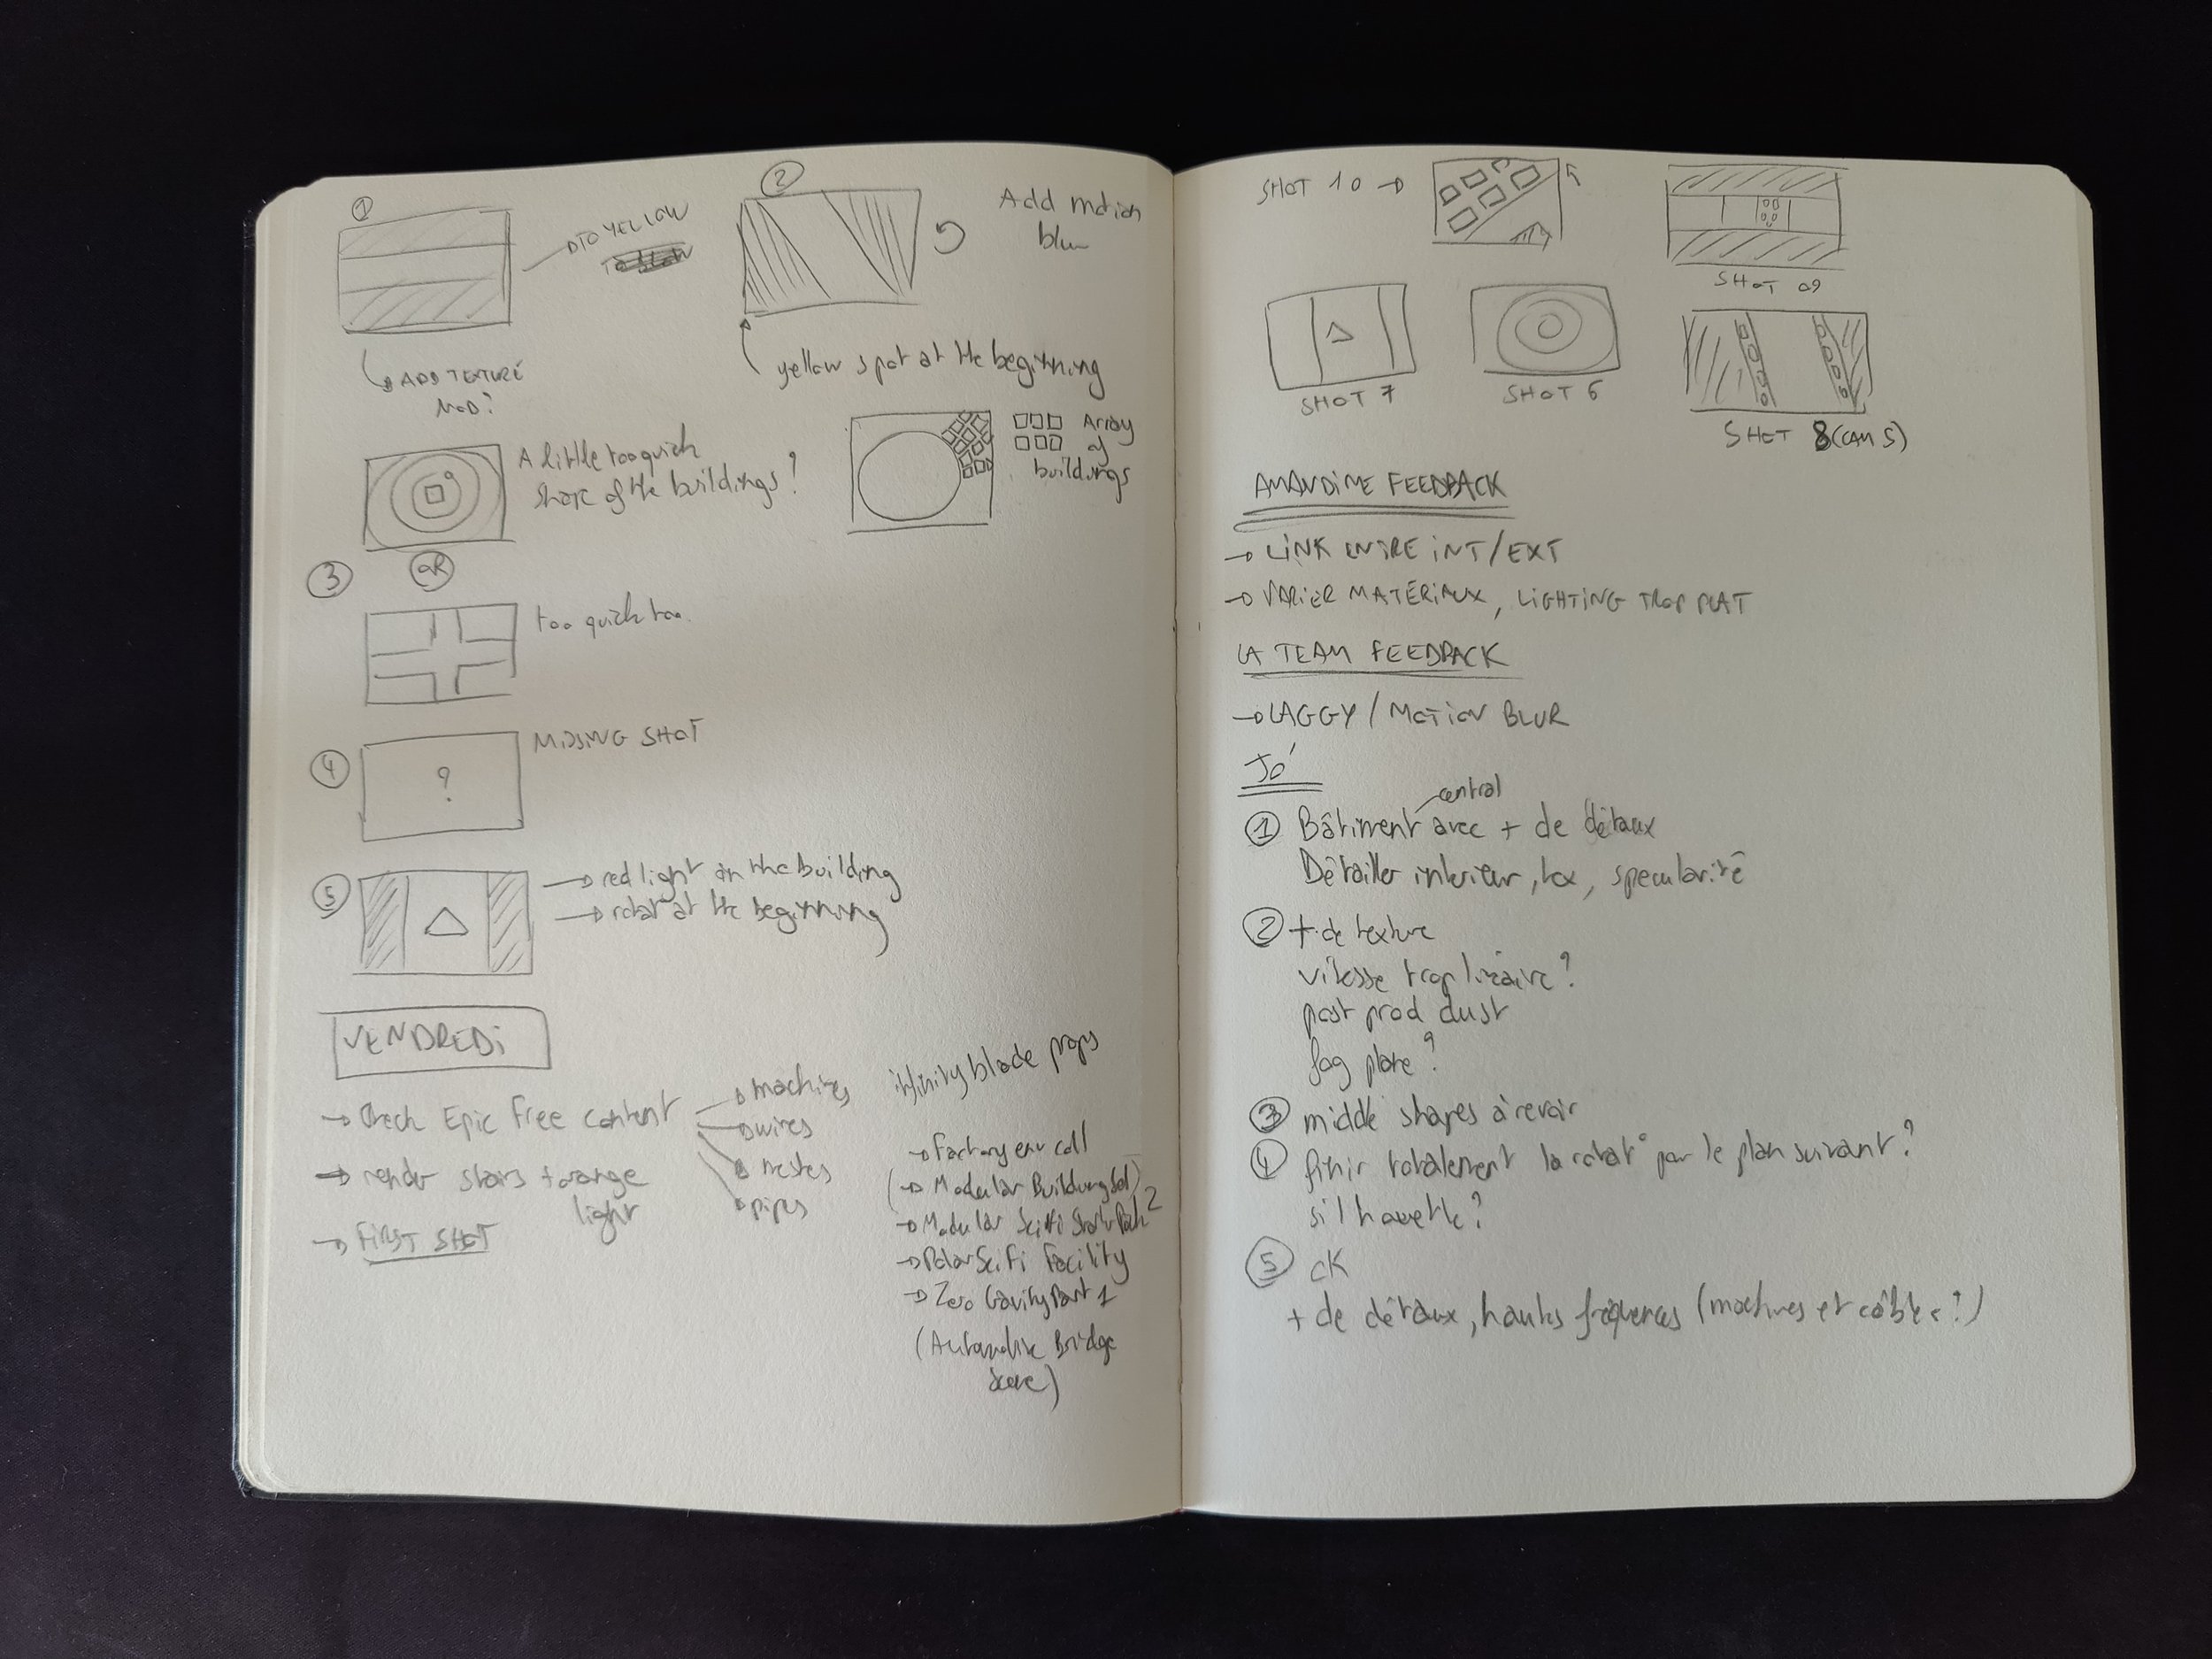 1
TO YELLOW
ADD TEXTURE
MOD?
2
Add motion
blur
yellow spot at the beginning
A little too quick
share of the buildings?
Array
of
buildings
3
OR
too quick too.
4
?
MISSING SHOT
5
→ red light in the building
→ rotat at the beginning
VENDREDI
→ Check Epic Free content
→ machines
→ wires
pipes
→ render stairs + orange
light
→ FIRST SHOT
infinity blade props
→ Factory env coll
(→ Modular Building Set)
→ Modular Scifi Starter Pack 2
→ Polar Sci Fi Facility
→ Zero Gavity Part 1
(Automotive Bridge
Scene)
SHOT 10 →
SHOT 09
SHOT 7
SHOT 6
SHOT 8 (CAM 5)
AMANDINE FEEDBACK
→ LINK ENTRE INT/EXT
→ VARIER MATÉRIAUX, LIGHTING TROP PLAT
LA TEAM FEEDBACK
→ LAGGY / MOTION BLUR
JO
central
1 Bâtiment avec + de détaux
Détailler interieur, tex, specularité
2 + de texture
vitesse trop linéaire?
post prod dust
fog plane?
3 middle shapes à revoir
4 finir totalement la rotat° pour le plan suivant?
silhouette?
5 OK
+ de détaux, hautes fréquences (machines et câbles?)